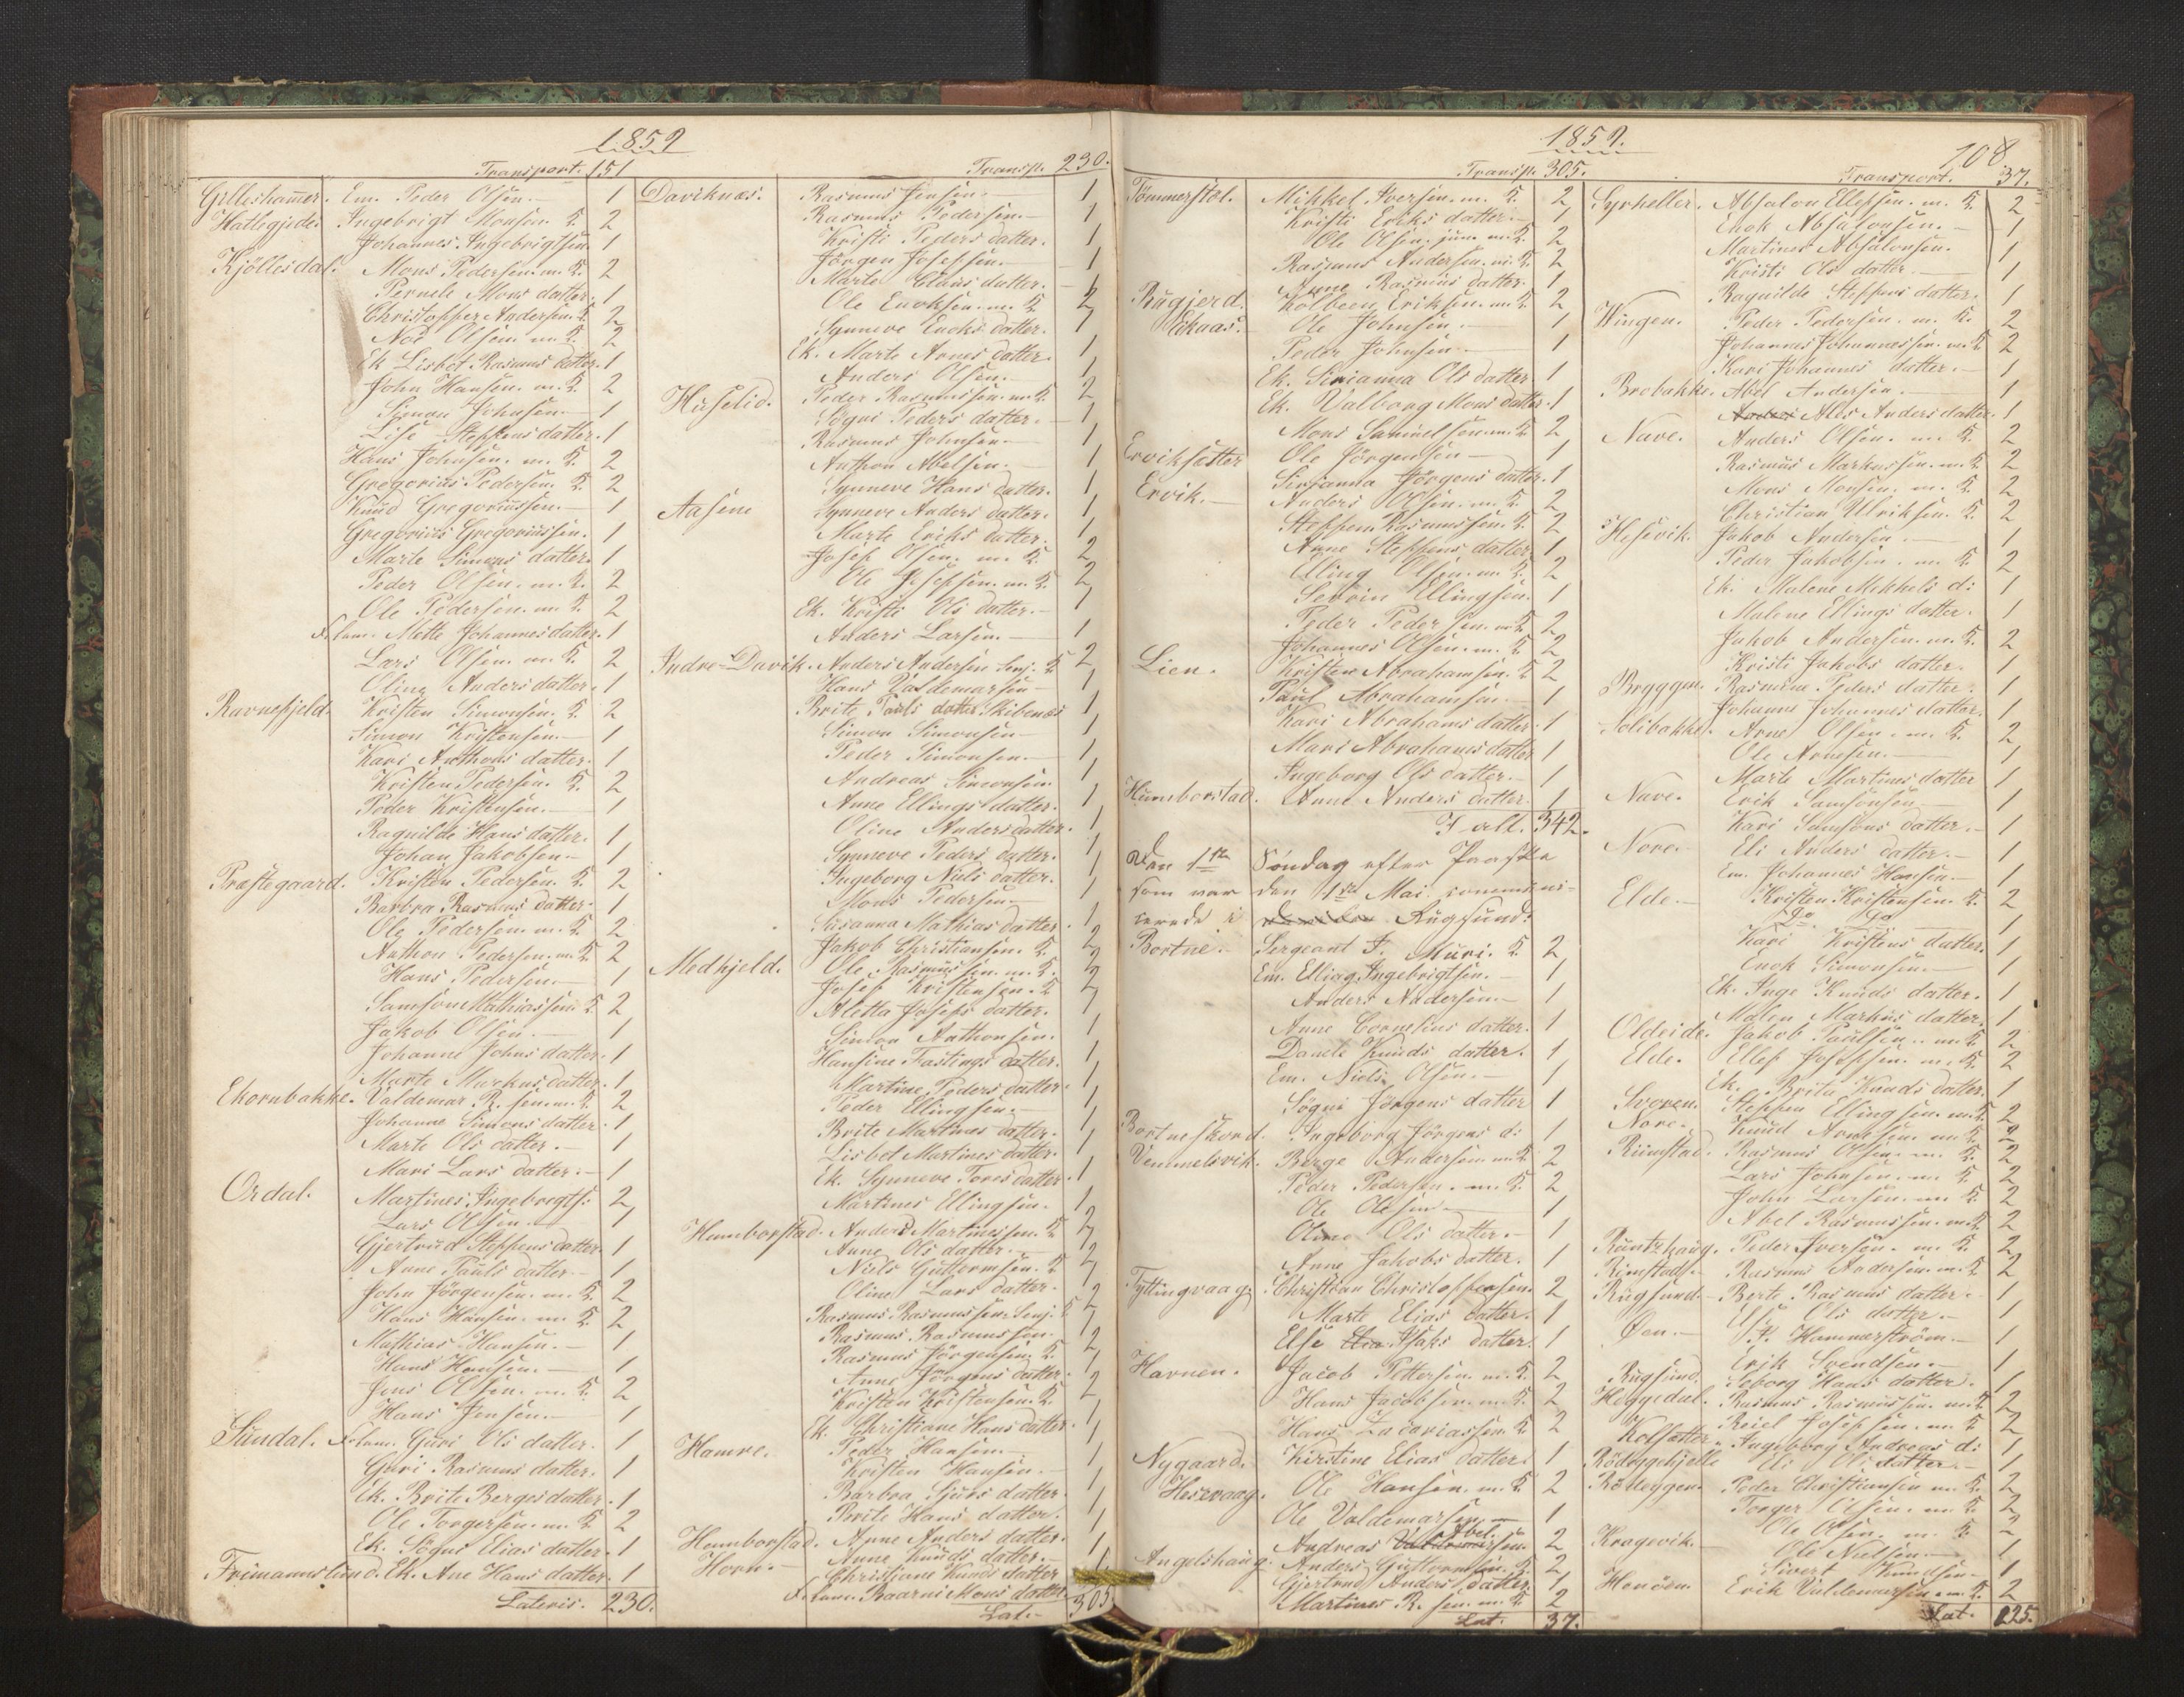 1859
Transport. 151
Gilleshamer. Em. Peder Olsen. 1
Hatlegjede. Ingebrigt Monsen. K. 2
Johannes Ingebrigtsen. 1
Kjöllesdal. Mons Pedersen. m. K. 2
Pernele Mons datter. 1
Christopher Andersen. K. 2
Noe Olsen. m. K. 2
Ek. Lisbet Rasmus datter. 1
John Hansen. m. K. 2
Simon Johnsen. 1
Lise Steffens datter. 1
Hans Johnsen. m. K. 2
Gregorius Pedersen. K. 2
Knud Gregoriussen. 1
Gregorius Gregoriussen. 1
Marte Simons datter. 1
Peder Olsen. m. K. 2
Ole Pedersen. m. K. 2
Mette Johannes datter. 1
Lars Olsen. m. K. 2
Oline Anders datter. 1
Ravnefjeld. Kristen Simonsen. K. 2
Simon Kristensen. 1
Kari Anthons datter. 1
Kristen Pedersen. K. 2
Peder Kristensen. 1
Ragnilde Hans datter. 1
Johan Jakobsen. 1
Præstegaard. Kristen Pedersen. K. 2
Barbra Rasmus datter. 1
Ole Pedersen. m. K. 2
Anthon Pedersen. m. K. 2
Hans Pedersen. 1
Samson Mathiassen. K. 2
Jakob Olsen. 1
Johanne Johns datter. 1
Marte Markus datter. 1
Ekornbakke. Valdemar R. sen. m. K. 2
Johanne Simons datter. 1
Marte Ols datter. 1
Mari Lars datter. 1
Ordal. Martines Ingebrigts: 2
Lars Olsen. 1
Gjertrud Steffens datter. 1
Anne Pauls datter. 1
John Jörgensen. m. K. 2
Hans Hansen. m. K. 2
Mathias Hansen. 1
Hans Hansen. 1
Jens Olsen. m. K. 2
Hans Jensen. 1
Sundal. Guri Ols datter. 1
Guri Rasmus datter. 1
Ek. Brite Berges datter. 1
Ole Torgersen. m. K. 2
Ek. Sögni Elias datter. 1
Frimannslund. Ek. Ane Hans datter. 1
Lateris. 230.
Transp. 230.
Daviknæs. Rasmus Jensen. 1
Rasmus Pedersen. 1
Kristi Peders datter. 1
Jörgen Josefsen. 1
Marte Claus datter. 1
Ole Enoksen. m. K. 2
Synneve Enoks datter. 1
Ek. Marte Arnes datter. 1
Anders Olsen. 1
Huselid. Peder Rasmussen. m. K. 2
Sögni Peders datter. 1
Rasmus Johnsen. 1
Anthon Abelsen. 1
Synneve Hans datter. 1
Aasene Synneve Anders datter. 1
Marte Eriks datter. 1
Josef Olsen. m. K. 2
Ole Josefsen. m. K. 2
Ek. Kristi Ols datter. 1
Anders Larsen. 1
Indre-Davik. Anders Andersen Senj. K. 2
Hans Valdemarsen 1
Brite Pauls datter Skibenes 1
Simon Simonsen 1
Peder Simonsen. 1
Andreas Simonsen 1
Anne Ellings datter. 1
Oline Anders datter. 1
Synneve Peders datter. 1
Ingeborg Niels datter. 1
Mons Pedersen. 1
Susanna Mathias datter 1
Jakob Christiansen. K. 2
Medhjeld. Ole Rasmussen. m. K. 2
Josef Kristensen. K. 2
Aletta Josefs datter. 1
Simon Anthonsen. 1
Hansine Fastings datter. 1
Martine Peders datter. 1
Peder Ellingsen. 1
Brite Martines datter. 1
Lisbet Martines datter. 1
Ek. Synneve Tores datter. 1
Martines Ellingsen. 1
Hennborstad. Anders Martinessen. K. 2
Anne Ols datter. 1
Niels Guttormsen. K. 2
Oline Lars datter. 1
Rasmus Rasmussen. Senj. K. 2
Rasmus Rasmussen. 1
Rasmus Jörgensen. K. 2
Anne Jörgens datter. 1
Kristen Kristensen. K. 2
Ek. Christiane Hans datter. 1
Hamre. Peder Hansen. 1
Kristen Hansen. 1
Barbra Sjurs datter. 1
Brite Hans datter. 1
Hennborstad. Anne Anders datter. 1
Horn. Anne Knuds datter. 1
Christiane Knuds datter 1
Mons datter 1
Lat. 305
1859.
Transp. 305.
Tömmerstøl. Mikkel Iversen. m. K. 2
Kristi Eriks datter. 1
Ole Olsen. jun. m. K. 2
Rasmus Andersen. m. K. 2
Anne Rasmus datter. 1
Rugjerd. Kolbeen Eriksen. m. K. 2
Ekaas. Ole Johnsen. 1
Peder Johnsen 1
Ek. Sirianna Ols datter 1
Ek. Valborg Mons datter. 1
Mons Samuelsen. m. K. 2
Erviksetter Ole Jörgensen 1
Sirianna Jörgens datter. 1
Ervik. Anders Olsen. m. K. 2
Steffen Rasmussen. K. 2
Anne Steffens datter. 1
Elling Olsen. m. K. 2
Severin Ellingsen. 1
Peder Pedersen. m. K. 2
Johannes Olsen. m. K. 2
Lien. Kristen Abrahamsen. K. 2
Paul Abrahamsen. 1
Kari Abrahams datter. 1
Mari Abrahams datter 1
Ingeborg Ols datter. 1
Hennborstad. Anne Anders datter. 1
I alt. 342.
Den 1ste Søndag efter Paaske
som var den 1ste Mai communi-
cerede i Rugsund:
Bortne. Sergeant J. Muri. K. 2
Em. Elling Ingebrigtsen. 1
Anders Andersen. 1
Anne Cornelius datter. 1
Knuds datter. 1
Em. Niels Olsen. 1
Sögni Jörgens datter 1
Bortneskard. Ingeborg Jörgens d: 1
Vemmelsvik. Berge Andersen m. K. 2
Peder Pedersen. m. K. 2
Ole Olesen. 1
Oline Ols datter. 1
Anne Jakobs datter. 1
Tyttingvaag. Christian Christoffersen. 2
Marte Elias datter. 1
Else Isaks datter. 1
Havnen. Jacob Pettersen. m. K. 2
Hans Jacobsen. m. K. 2
Hans Zacariassen. K. 2
Nygaard. Kirstine Elias datter. 1
Hessvaag. Ole Hansen. m. K. 2
Ole Valdemarsen. 1
Andreas Abelsen. 2
Angelshaug. Anders Guttormsen. K. 2
Gjertrud Anders datter. 1
Martines R. sen. m. K. 2
Lat. 37.
108
Transport. 37.
Syrheller. Absalon Ellefsen. m. K. 2
Enok Absalonsen. 1
Martines Absalonsen. 1
Kristi Ols datter. 1
Ragnilde Steffens datter. 1
Wingen. Peder Pedersen. m. K. 2
Johannes Johannessen. m. K. 2
Kari Johannes datter. 1
Brobakke. Abel Andersen. 1
Ales Anders datter. 1
Nave. Anders Olsen. m. K. 2
Rasmus Markussen. m. K. 2
Mons Monsen. m. K. 2
Christian Ulriksen. K. 2
Hessvik. Jakob Andersen. 1
Peder Jakobsen. m. K. 2
Ek. Malene Mikkels d: 1
Malene Ellings datter. 1
Jakob Andersen. m. K. 2
Kristi Jakobs datter. 1
Bryggen. Rasmine Peders datter. 1
Johanne Johannes datter. 1
Solibakke. Arne Olsen. m. K. 2
Ole Arnesen. 1
Marte Martines datter 1
Nave. Erik Samsonsen 1
Kari Samsons datter. 1
Nore. Eli Anders datter. 1
Em. Johannes Hansen. 1
Elde. Kristen Kristensen. K. 2
Do Do 1
Kari Kristens datter. 1
Enok Simonsen. 1
Ek. Inge Knuds datter. 1
Malen Markus datter. 1
Oldeide. Jakob Paulsen. m. K. 2
Elde. Ellef Josefsen. m. K. 2
Ek. Brita Knuds datter. 1
Svoren. Steffen Ellingsen. m. K. 2
Nore. Knud Arnesen. m. K. 2
Rimstad. Rasmus Olsen. m. K. 2
Lars Johnsen. m. K. 2
John Larsen. m. K. 2
Abel Rasmussen. m. K. 2
Runtzhaug. Peder Iversen. m. K. 2
Rimstad. Rasmus Andersen. m. K. 2
Rugsund. Berte Rasmus datter. 1
Else Ols datter. 1
Øen. Hammerström. 1
Erik Svendsen. 1
Rugsund. Seborg Hans datter. 1
Heggedal. Rasmus Rasmussen. m. K. 2
Reiel Josefsen. m. K. 2
Kolsætter. Ingeborg Andreas d: 1
Eli Ols datter. 1
Rödeggen. Peder Christiansen m. K. 2
Torger Olsen. m. K. 2
Ole Olsen. m. K. 2
Kragevik. Ole Nielsen. 1
Sivert Knudsen. 1
Henöen. Erik Valdemarsen. m. K. 2
Lat. 125.